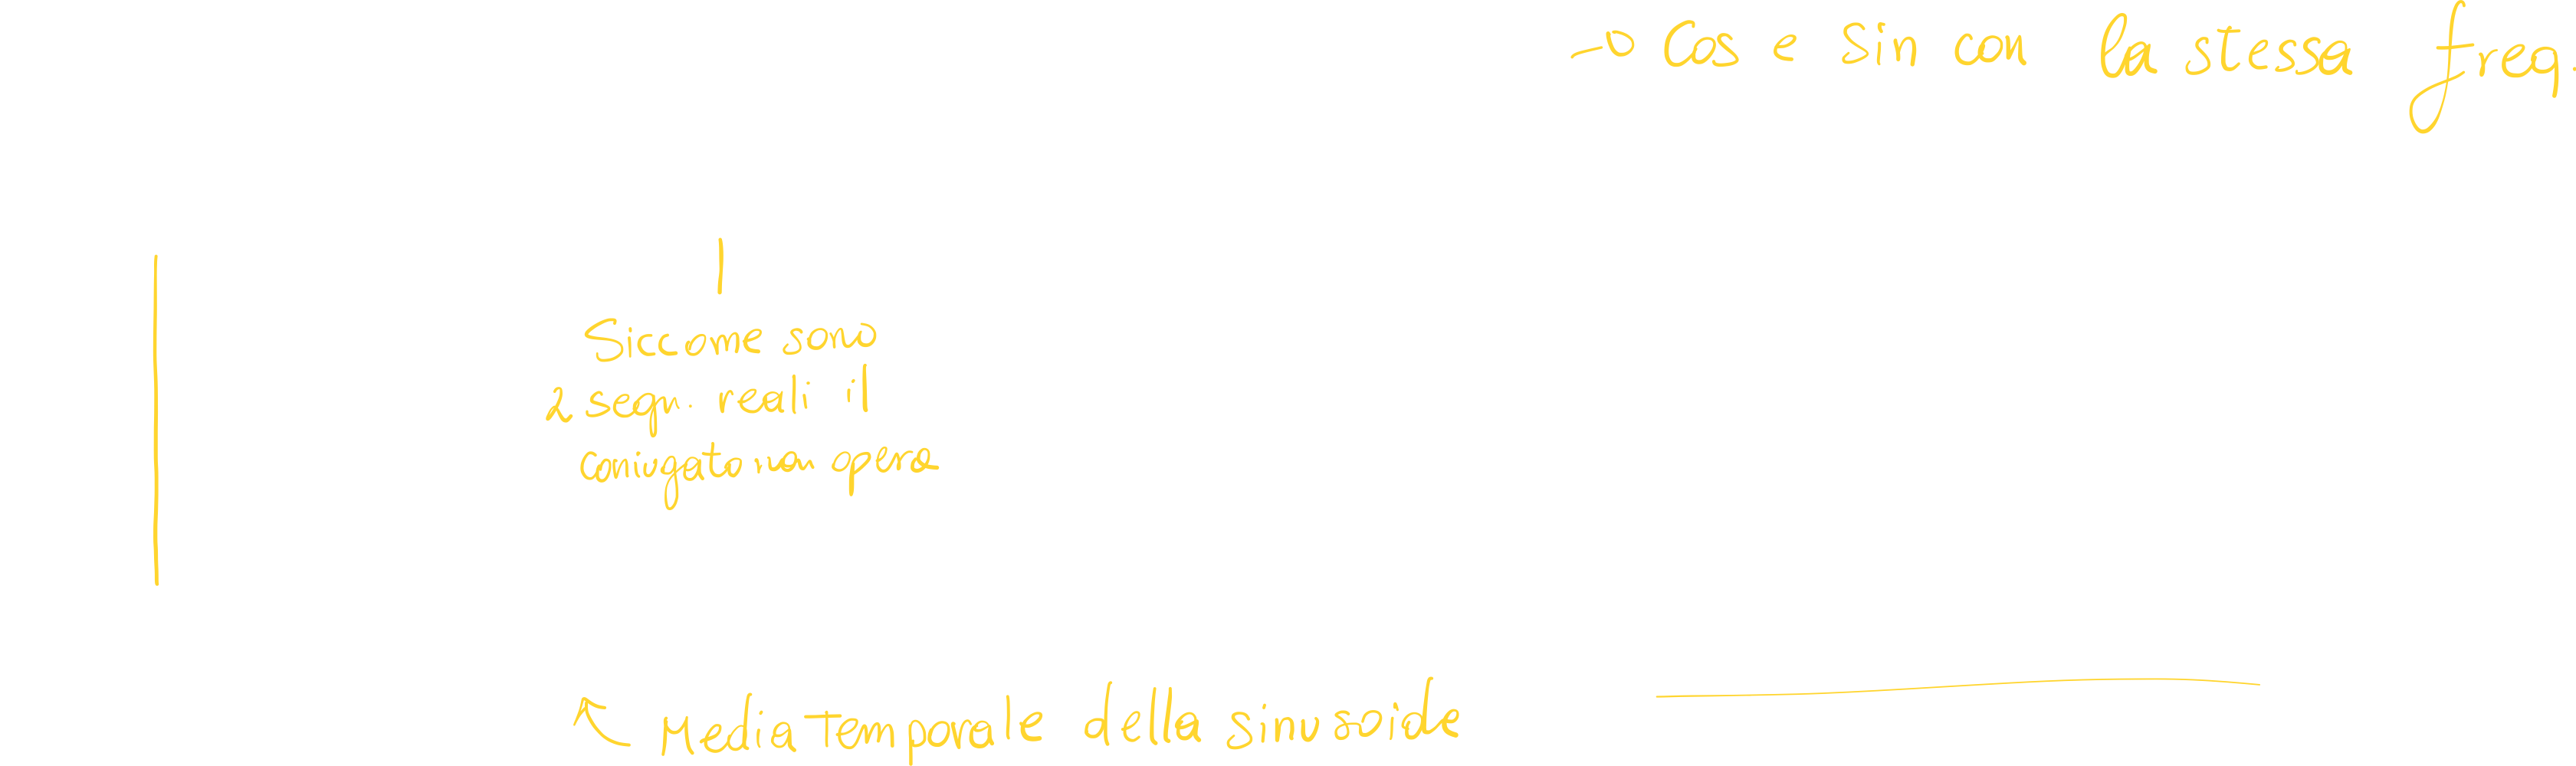 → Cos e sin con la stessa freq.
Siccome sono
2 segn. reali il
coniugato non opera
Media temporale della sinusoide